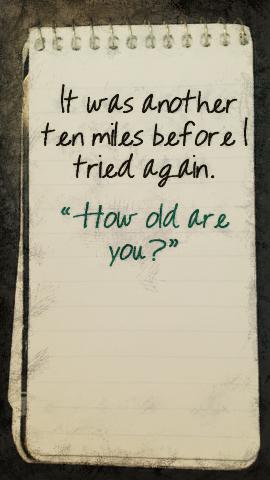 It was another
ten miles before I
tried again.
“How old are
you?”